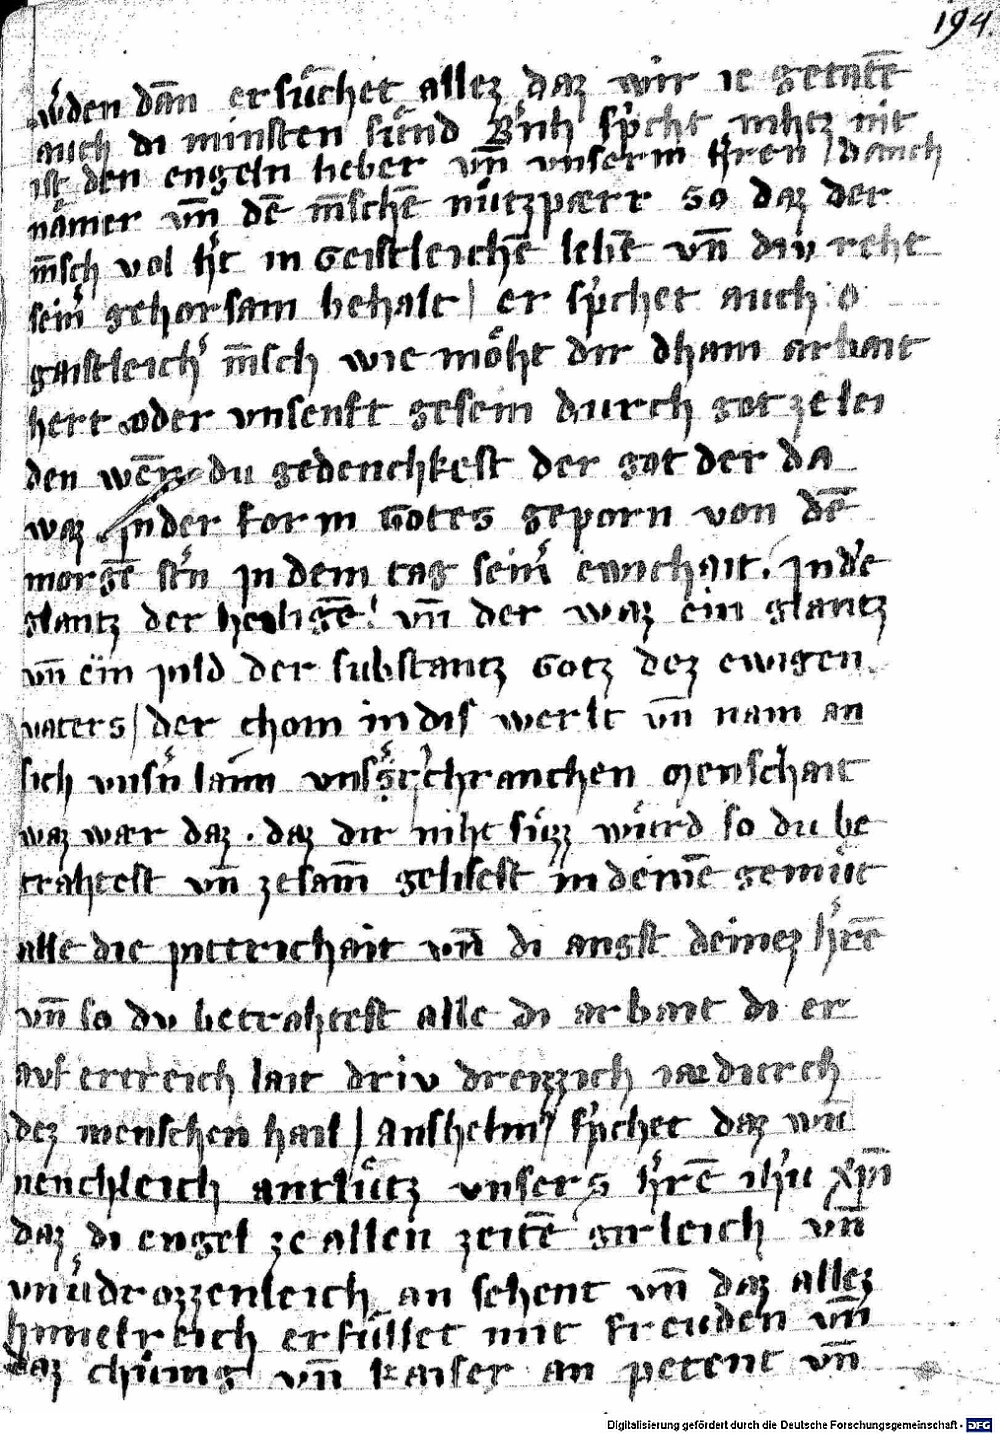 194.
wͤden dañ ersuͤchet allez daz wir ie getatē
auch di minsten suͤnd B̾nh sp̾cht nihtz nit
ist den engeln lieber vn̄ vnserm h̾ren / danch
naͤmer vn̄ dē m̄schē nuͤtzpærr so daz der
m̄sch vol h̾t in Geistleichē lebē vn̄ div reht
sein̾ gehorsam behalt / er sp̾chet auch o
gaistleich̾ m̄sch wie moͤht dir dhain arbait
hert oder vnsenft gesein durch got ze lei
den wen̄ du gedenchkest der got der da
waz in der form Gotes geporn von dē
morgē st̾n in dem tag sein̾ ewichait . in dē
glantz der heiligē ! vn̄ der waz ein glantz
vn̄ ein pild der substantz Gotz dez ewigen
vaters / der chom in dis werlt vn̄ nam an
sich vnsn̾ laim vns̾ chranchen menschait
waz wær daz . daz dir niht suͤzz wuͤrd so du be
trahtest vn̄ zesam̄ gelisest in deinē gemuͤt
alle die pittrichait vn̄ di angst deinez h̾rē
vn̄ so du betrahtest alle di arbait di er
auf ertreich lait driv dreizzich iar durch
dez menschen hail / Anshelm̾ sp̾chet daz wū
nenchleich antluͤtz vnsers h̾rē ih̾u xp̄i
daz di engel ze allen zeitē girleich vn̄
vnu̾drozzenleich an sehent vn̄ daz allez
himelreich erfuͤllet mit freuden vn̄
daz chuͤnig vn̄ kaiser an petent vn̄
Digitalisierung gefördert durch die Deutsche Forschungsgemeinschaft - DFG